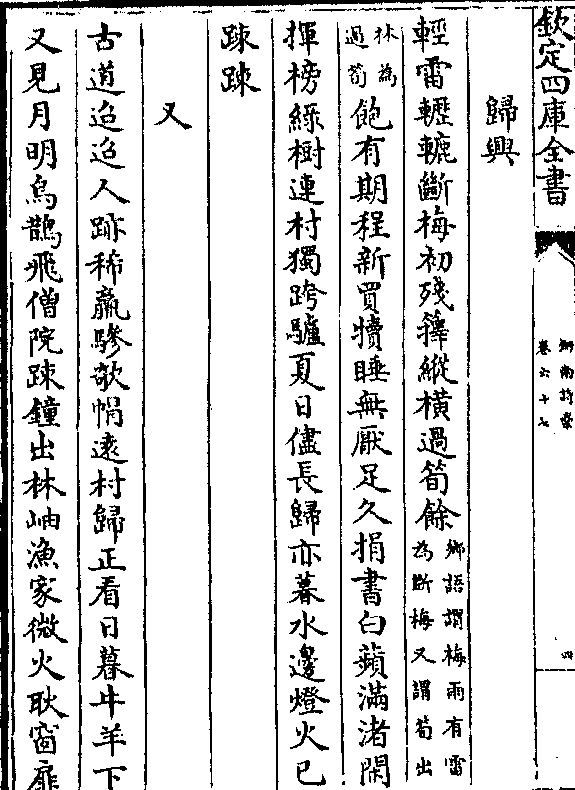 欽定四庫全書
劍南詩槀
卷六十七
四
歸興
輕雷轣轆斷梅初殘籜縱横過筍餘
鄉語謂梅雨有雷
為斷梅又謂筍出
林為
過筍
飽有期程新買犢睡無厭足久捐書白蘋滿渚閑
揮榜綠樹連村獨跨驢夏日儘長歸亦暮水邊燈火已
踈踈
又
古道迢迢人跡稀羸驂欹帽遠村歸正看日暮牛羊下
又見月明烏鵲飛僧院踈鐘出林岫漁家微火耿窗扉